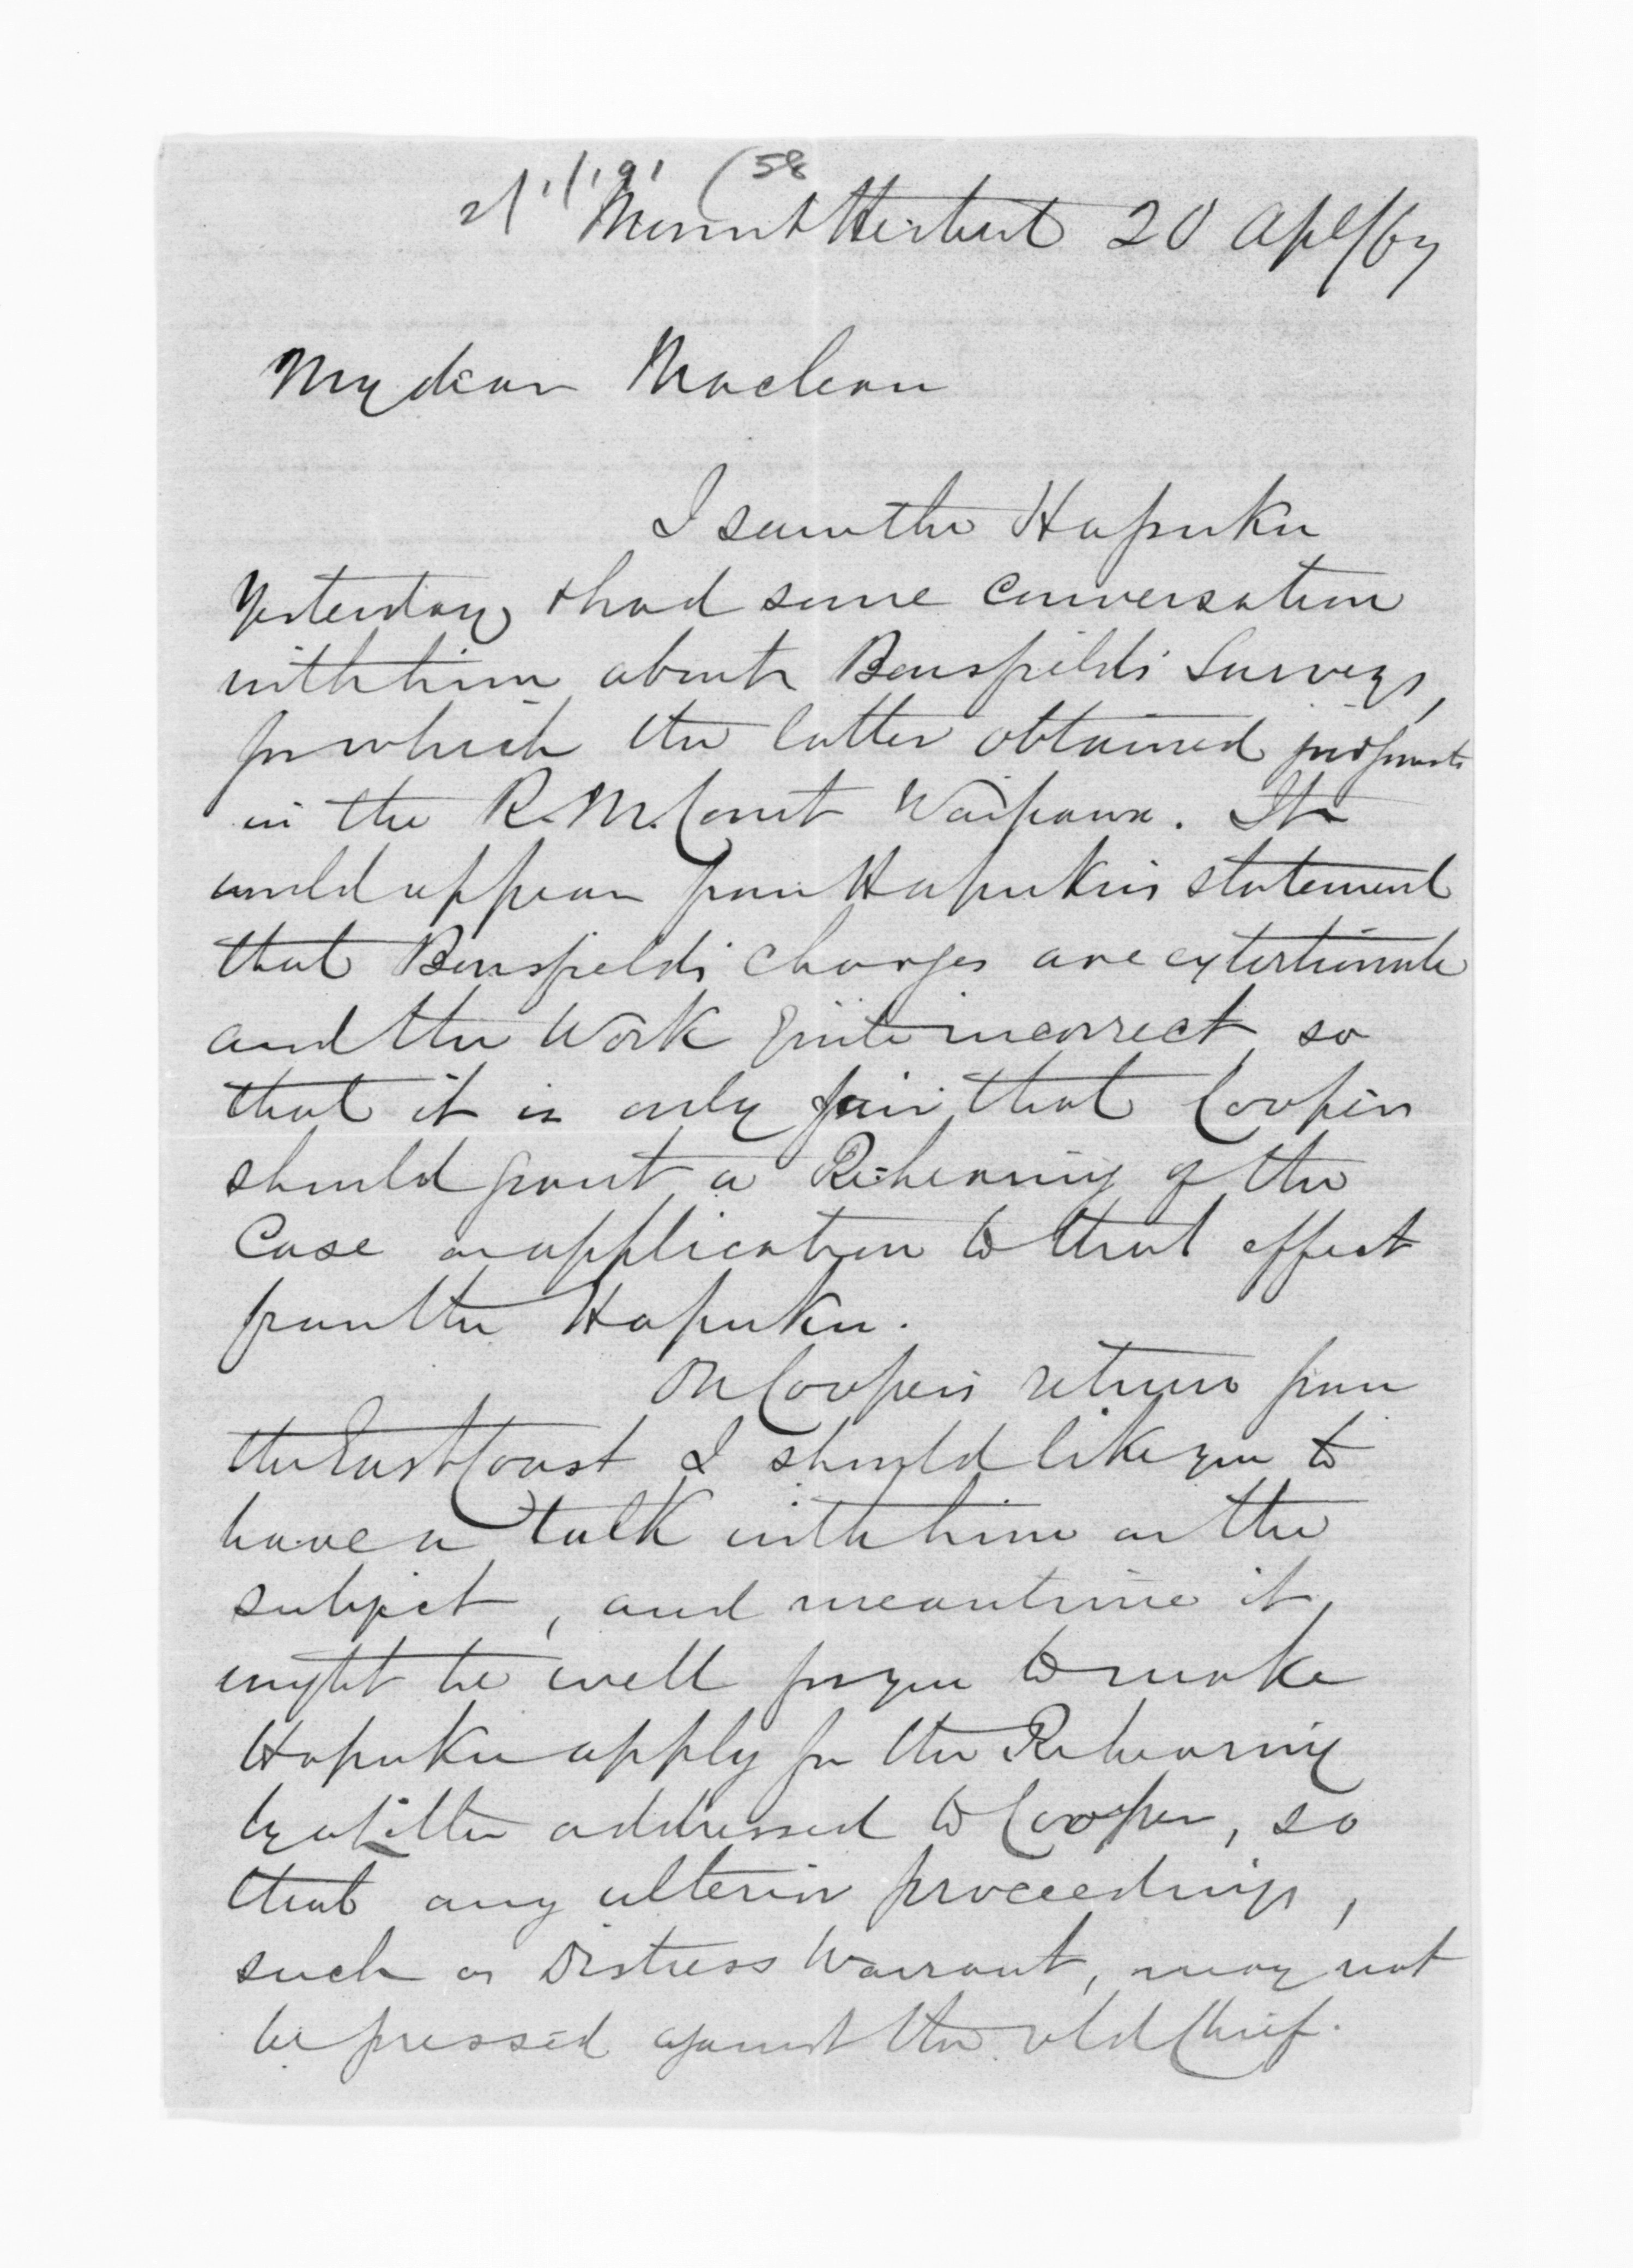 (58
Mount Herbert 20 Apl/67
My dear Maclean
I saw the Hapuku
Yesterday, & had some conversation
with him about Bousfield's Surveys,
for which the latter obtained judgments
in the R.M. Court Waipawa. It
would appear from Hapuku's statement
that Bousfield's charges are extortionate
and the Work quite incorrect so
that it is only fair that Cooper
should grant a Re-hearing of the
Case on application to that effect
from the Hapuku.
On Cooper's return from
the East Coast I should like you to
have a talk with him on the
subject, and meantime it
might be well for you to make
Hapuku apply for the Rehearing
by a Letter addressed to Cooper, so
that any ulterior proceedings,
such as Distress Warrant, may not
be pressed against the old Chief.